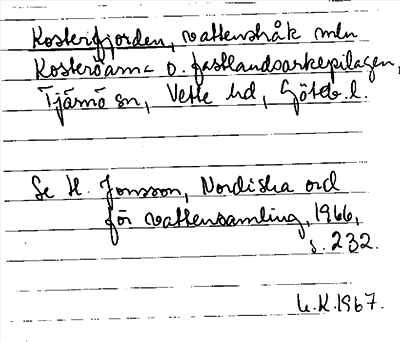 Kosterfjorden, vattenstråk mln
Kosteröarna o. fastlandsarkepilagen,
Tjärnö sn, Vette hd, Göteb.l.
Se H. Jonsson, Nordiska ord
för vattensamling, 1966,
s. 232.
G.K.1967.